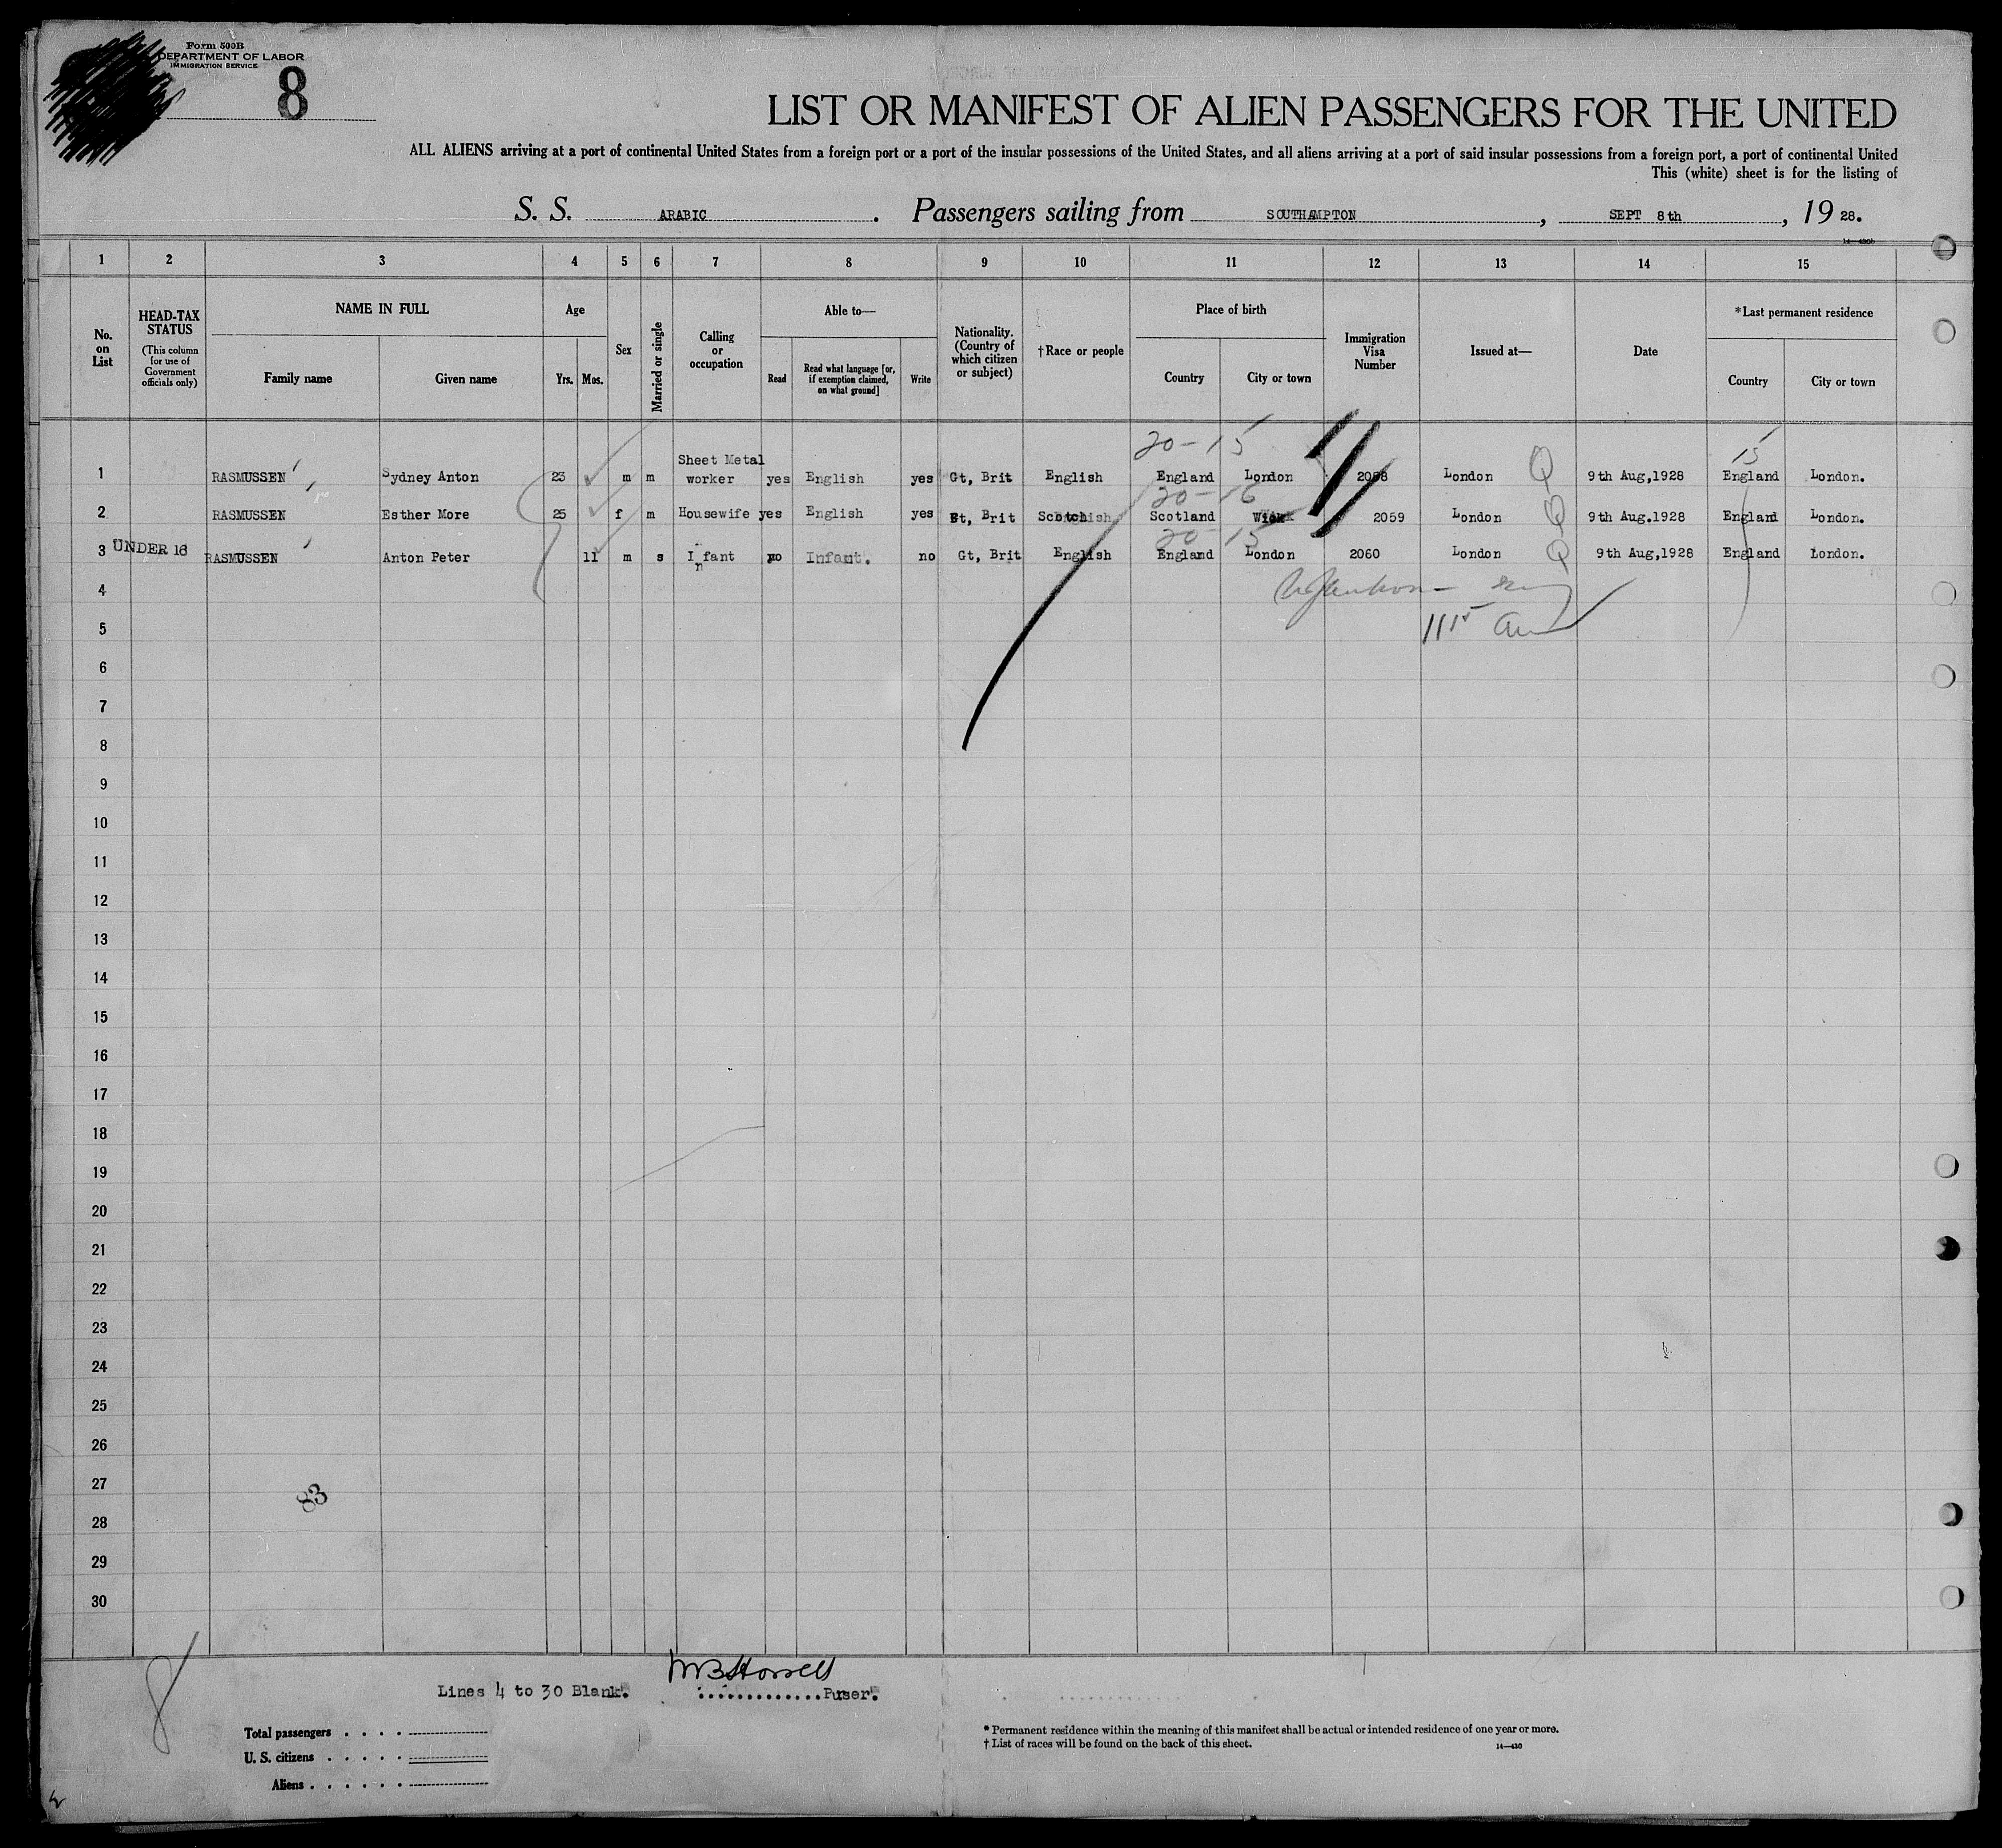 Form 500B
DEPARTMENT OF LABOR
IMMIGRATION SERVICE
8
LIST OR MANIFEST OF ALIEN PASSENGERS FOR THE UNITED
ALL ALIENS arriving at a port of continental United States from a foreign port or a port of the insular possessions of the United States, and all aliens arriving at a port of said insular possessions from a foreign port, a port of continental United
This (white) sheet is for the listing of
S. S. ARABIC. Passengers sailing from SOUTHAMPTON, SEPT 8th, 19 28.
1 2 3 4 5 6 7 8 9 10 11 12 13 14 15
No. on List
HEAD-TAX STATUS
(This column for use of Government officials only)
NAME IN FULL
Family name Given name
Age
Yrs. Mos.
Sex
Married or single
Calling or occupation
Able to—
Read
Read what language [or, if exemption claimed, on what ground]
Write
Nationality. (Country of which citizen or subject)
†Race or people
Place of birth
Country City or town
Immigration Visa Number
Issued at—
Date
*Last permanent residence
Country City or town
20-15 15
1 RASMUSSEN Sydney Anton 23 m m Sheet Metal worker yes English yes Gt, Brit English England London 2058 London Q 9th Aug,1928 England London.
20-16
2 RASMUSSEN Esther More 25 f m Housewife yes English yes Gt, Brit Scotch Scotland Wick 2059 London Q 9th Aug.1928 England London.
20-15
3 UNDER 16 RASMUSSEN Anton Peter 11 m s Infant no Infant. no Gt, Brit English England London 2060 London Q 9th Aug,1928 England London.
4
5
6
7
8
9
10
11
12
13
14
15
16
17
18
19
20
21
22
23
24
25
26
27
28
29
30
83
8
Lines 4 to 30 Blank. Purser.
Total passengers
U. S. citizens
Aliens
* Permanent residence within the meaning of this manifest shall be actual or intended residence of one year or more.
† List of races will be found on the back of this sheet.
14—430